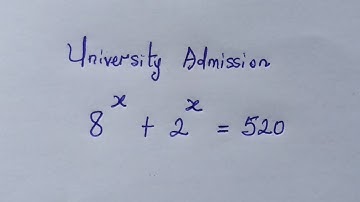 University Admission
8^x + 2^x = 520